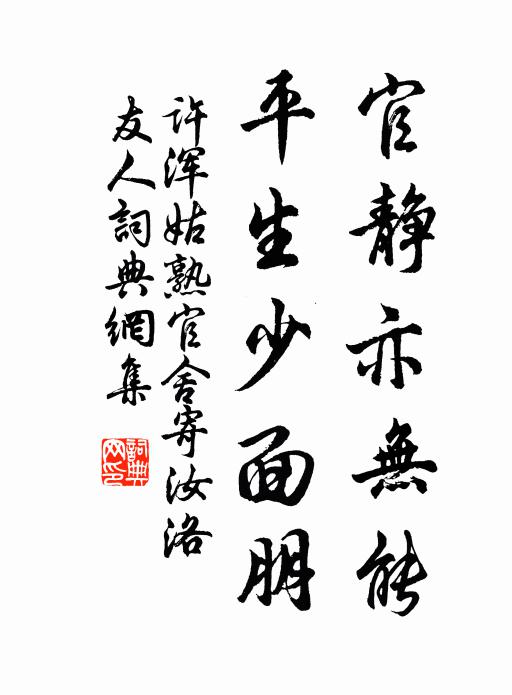 官静亦無能
平生少面朋
许浑姑熟官舍寄汝洛
友人詞典網集
詞典
网印